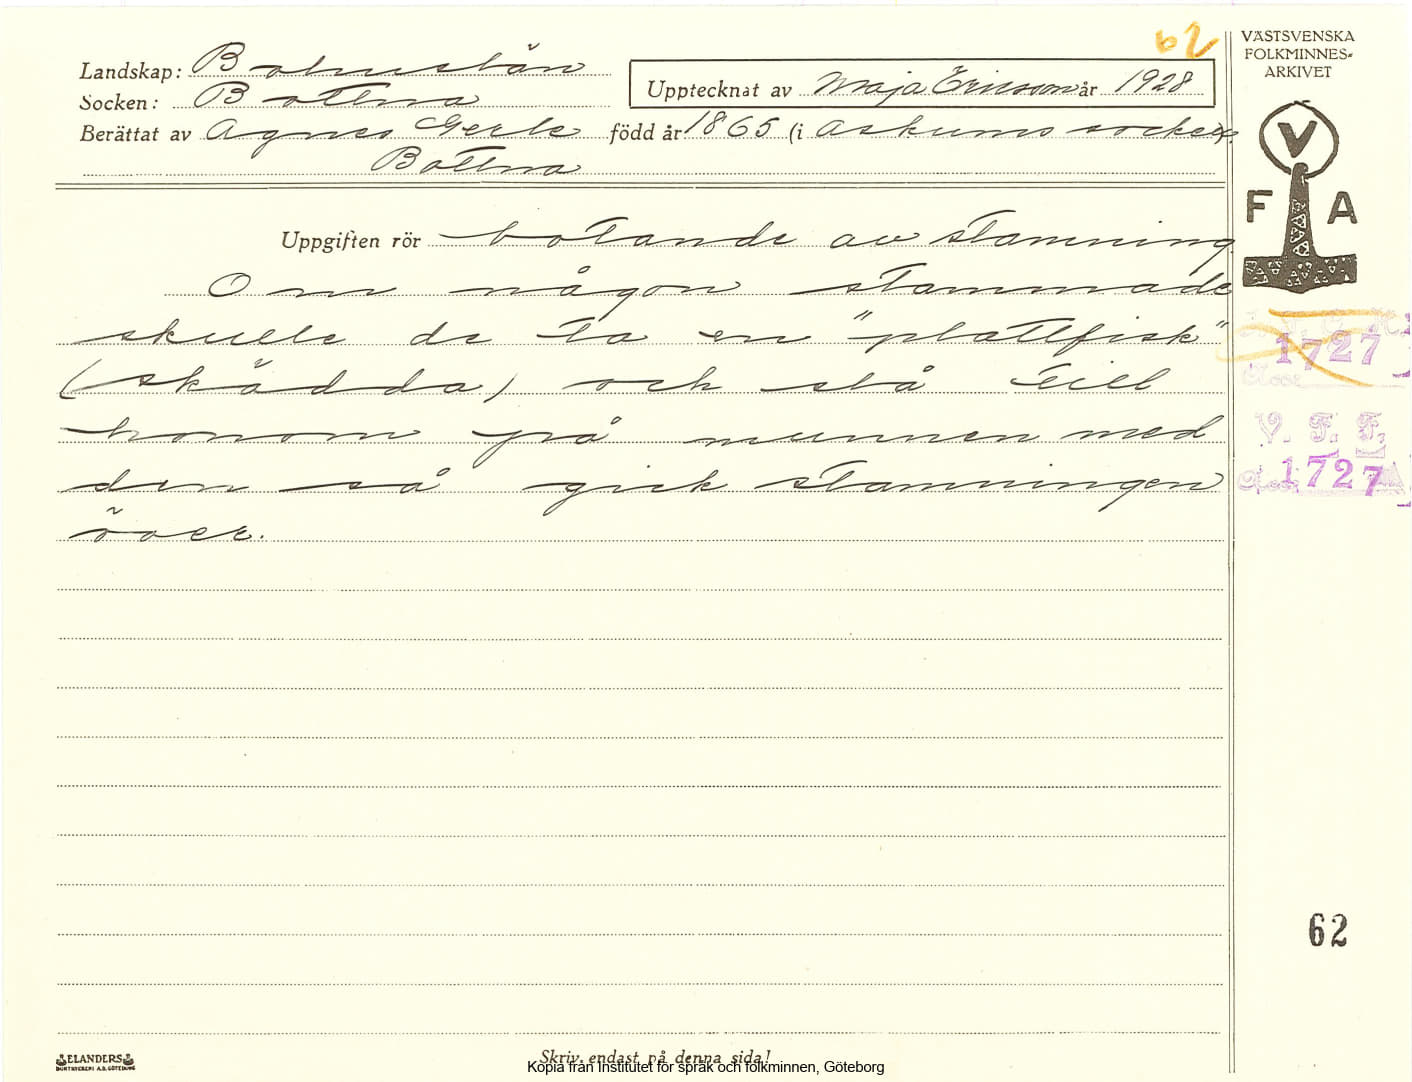 62
Landskap: Bohuslän
Socken: Bottna
Upptecknat av Maja Ericson år 1928
Berättat av Agnes Gerle född år 1865 (i Askums socken).
Bottna
VÄSTSVENSKA
FOLKMINNES-
ARKIVET
V
F A
Uppgiften rör botande av stamning
Om någon stammade
skulle de ta en "plattfisk"
(skädda) och slå till
honom på munnen med
den så gick stamningen
över.
1727
V. F. F.
1727
62
ELANDERS
BOKTRYCKERI A.B. GÖTEBORG
Skriv endast på denna sida!
Kopia från Institutet för språk och folkminnen, Göteborg